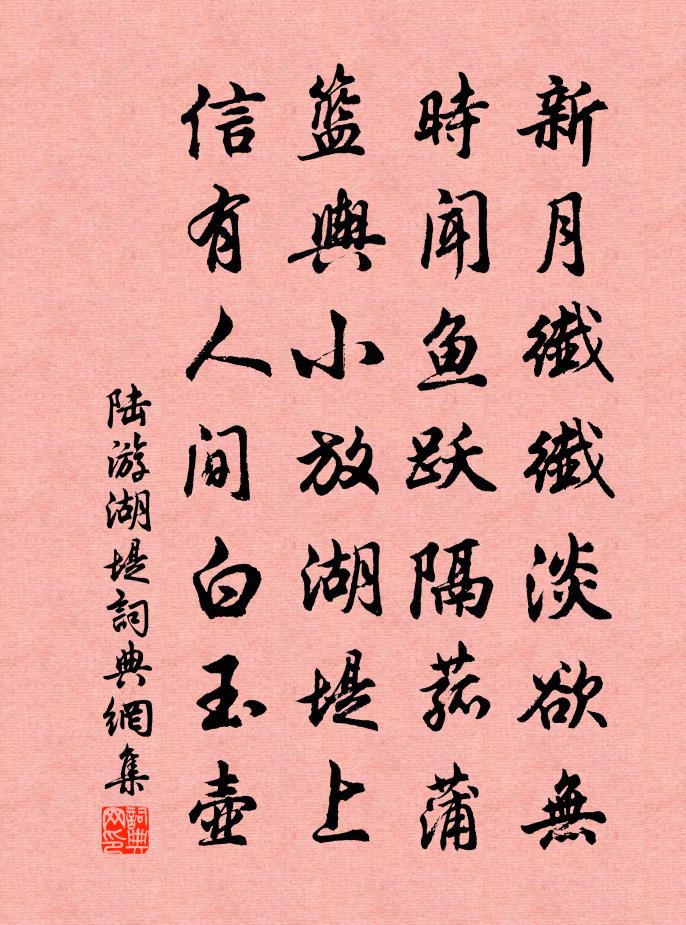 新月纖纖淡欲無
時闻鱼跃隔菰蒲
籃輿小放湖堤上
信有人间白玉壺
陆游湖堤詞典網集
詞典网印